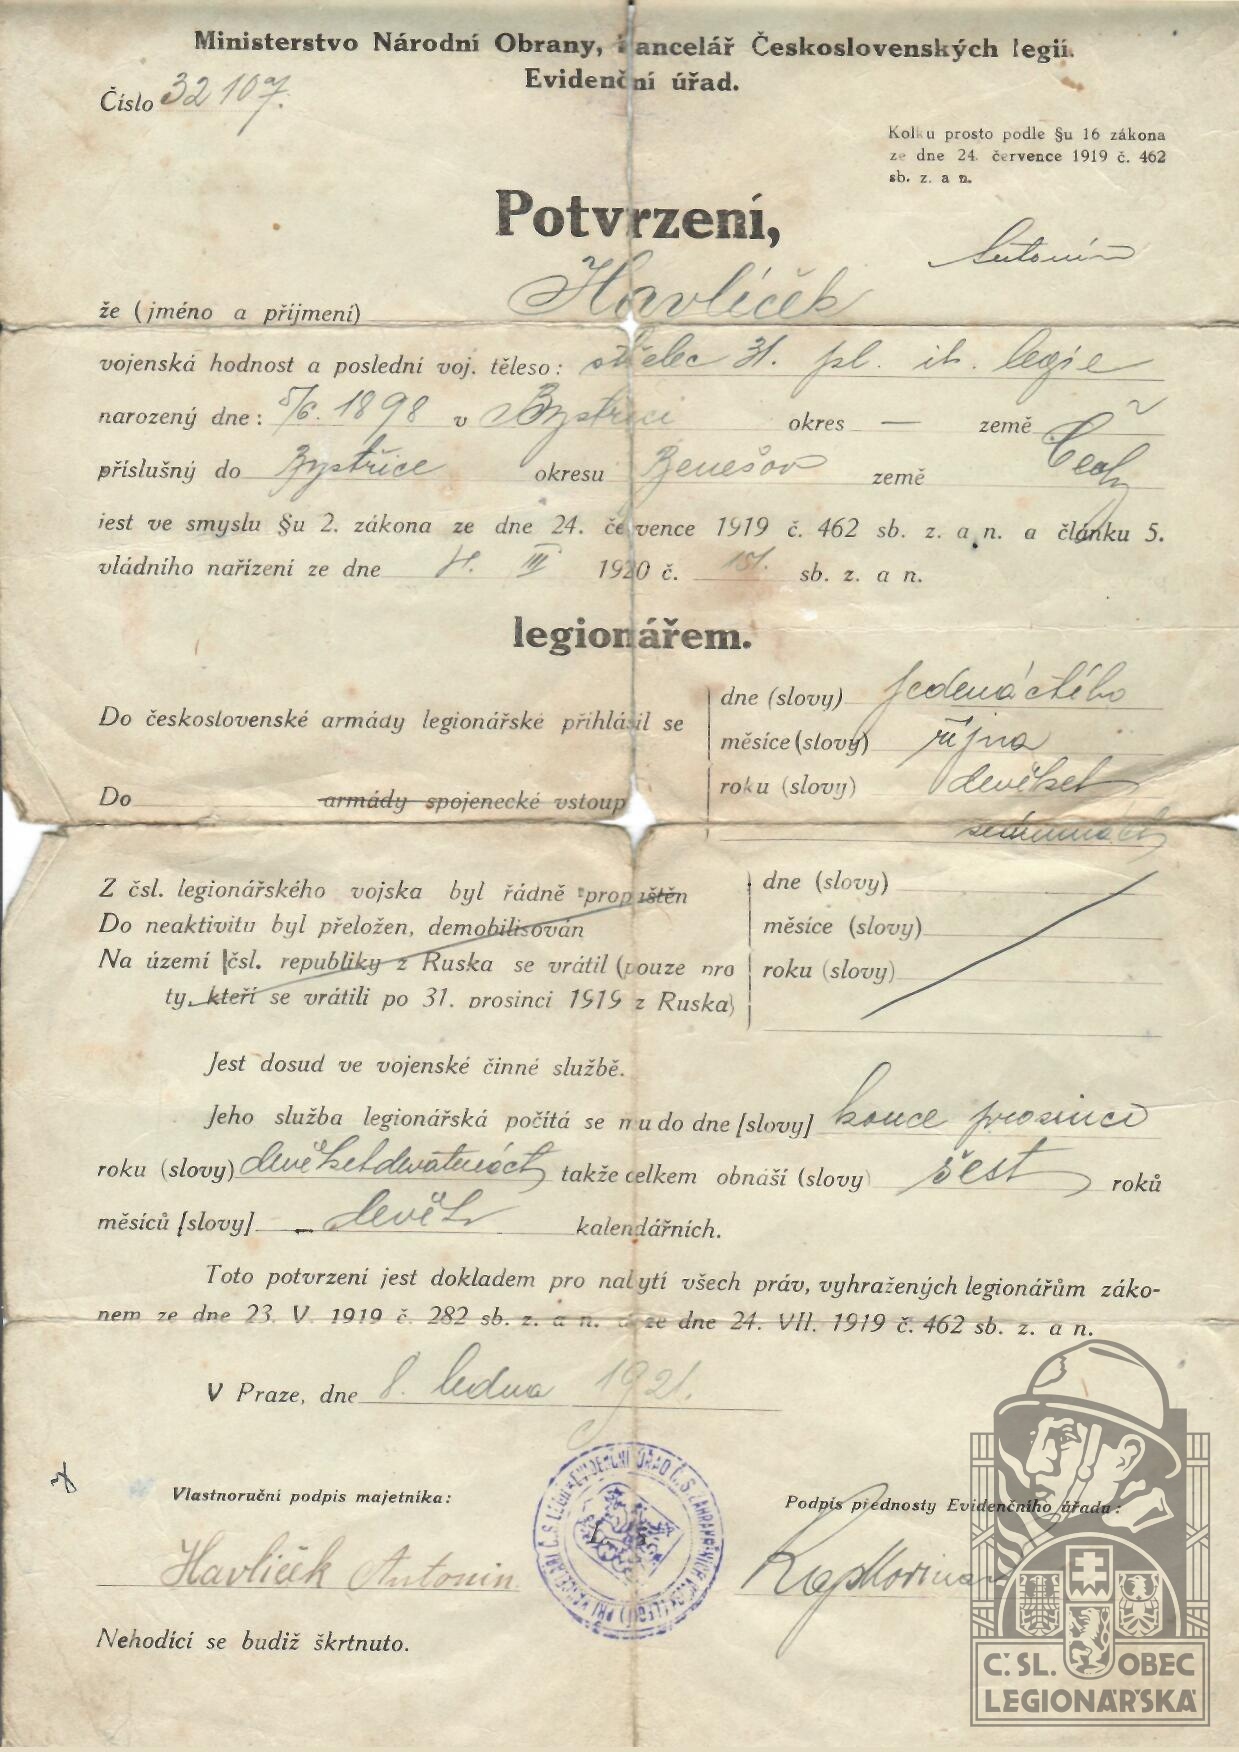 Ministerstvo Národní Obrany, Kancelář Československých legií.
Evidenční úřad.
Číslo 32107.
Kolku prosto podle §u 16 zákona
ze dne 24. července 1919 č. 462
sb. z. a n.
Potvrzení,
Antonín
že (jméno a příjmení) Havlíček
vojenská hodnost a poslední voj. těleso: střelec 31. pl. it. legie
narozený dne: 5/6. 1898 v Bystřici okres — země Čechy
příslušný do Bystřice okresu Benešov země
jest ve smyslu §u 2. zákona ze dne 24. července 1919 č. 462 sb. z. a n. a článku 5.
vládního nařízení ze dne 4. III 1920 č. 151. sb. z. a n.
legionářem.
Do československé armády legionářské přihlásil se
dne (slovy) jedenáctého
měsíce (slovy) října
Do armády spojenecké vstoup
roku (slovy) devětset
sedmnáct
Z čsl. legionářského vojska byl řádně propuštěn
dne (slovy)
Do neaktivitu byl přeložen, demobilisován
měsíce (slovy)
Na území čsl. republiky z Ruska se vrátil (pouze pro
roku (slovy)
ty, kteří se vrátili po 31. prosinci 1919 z Ruska)
Jest dosud ve vojenské činné službě.
Jeho služba legionářská počítá se mu do dne [slovy] konce prosince
roku (slovy) devětsetdevatenáct takže celkem obnáší (slovy) šest roků
měsíců [slovy] – devět kalendářních.
Toto potvrzení jest dokladem pro nabytí všech práv, vyhražených legionářům záko-
nem ze dne 23. V. 1919 č. 282 sb. z. a n. a ze dne 24. VII. 1919 č. 462 sb. z. a n.
V Praze, dne 8. ledna 1921.
Vlastnoruční podpis majetníka:
Podpis přednosty Evidenčního úřadu:
EVIDENČNÍ ÚŘAD Č.S. ZAHRANIČNÍCH
PŘI KANCELÁŘI Č.S. LEGIÍ
L. S.
Havlíček Antonín
Nehodící se budiž škrtnuto.
Č.SL. OBEC
LEGIONÁŘSKÁ